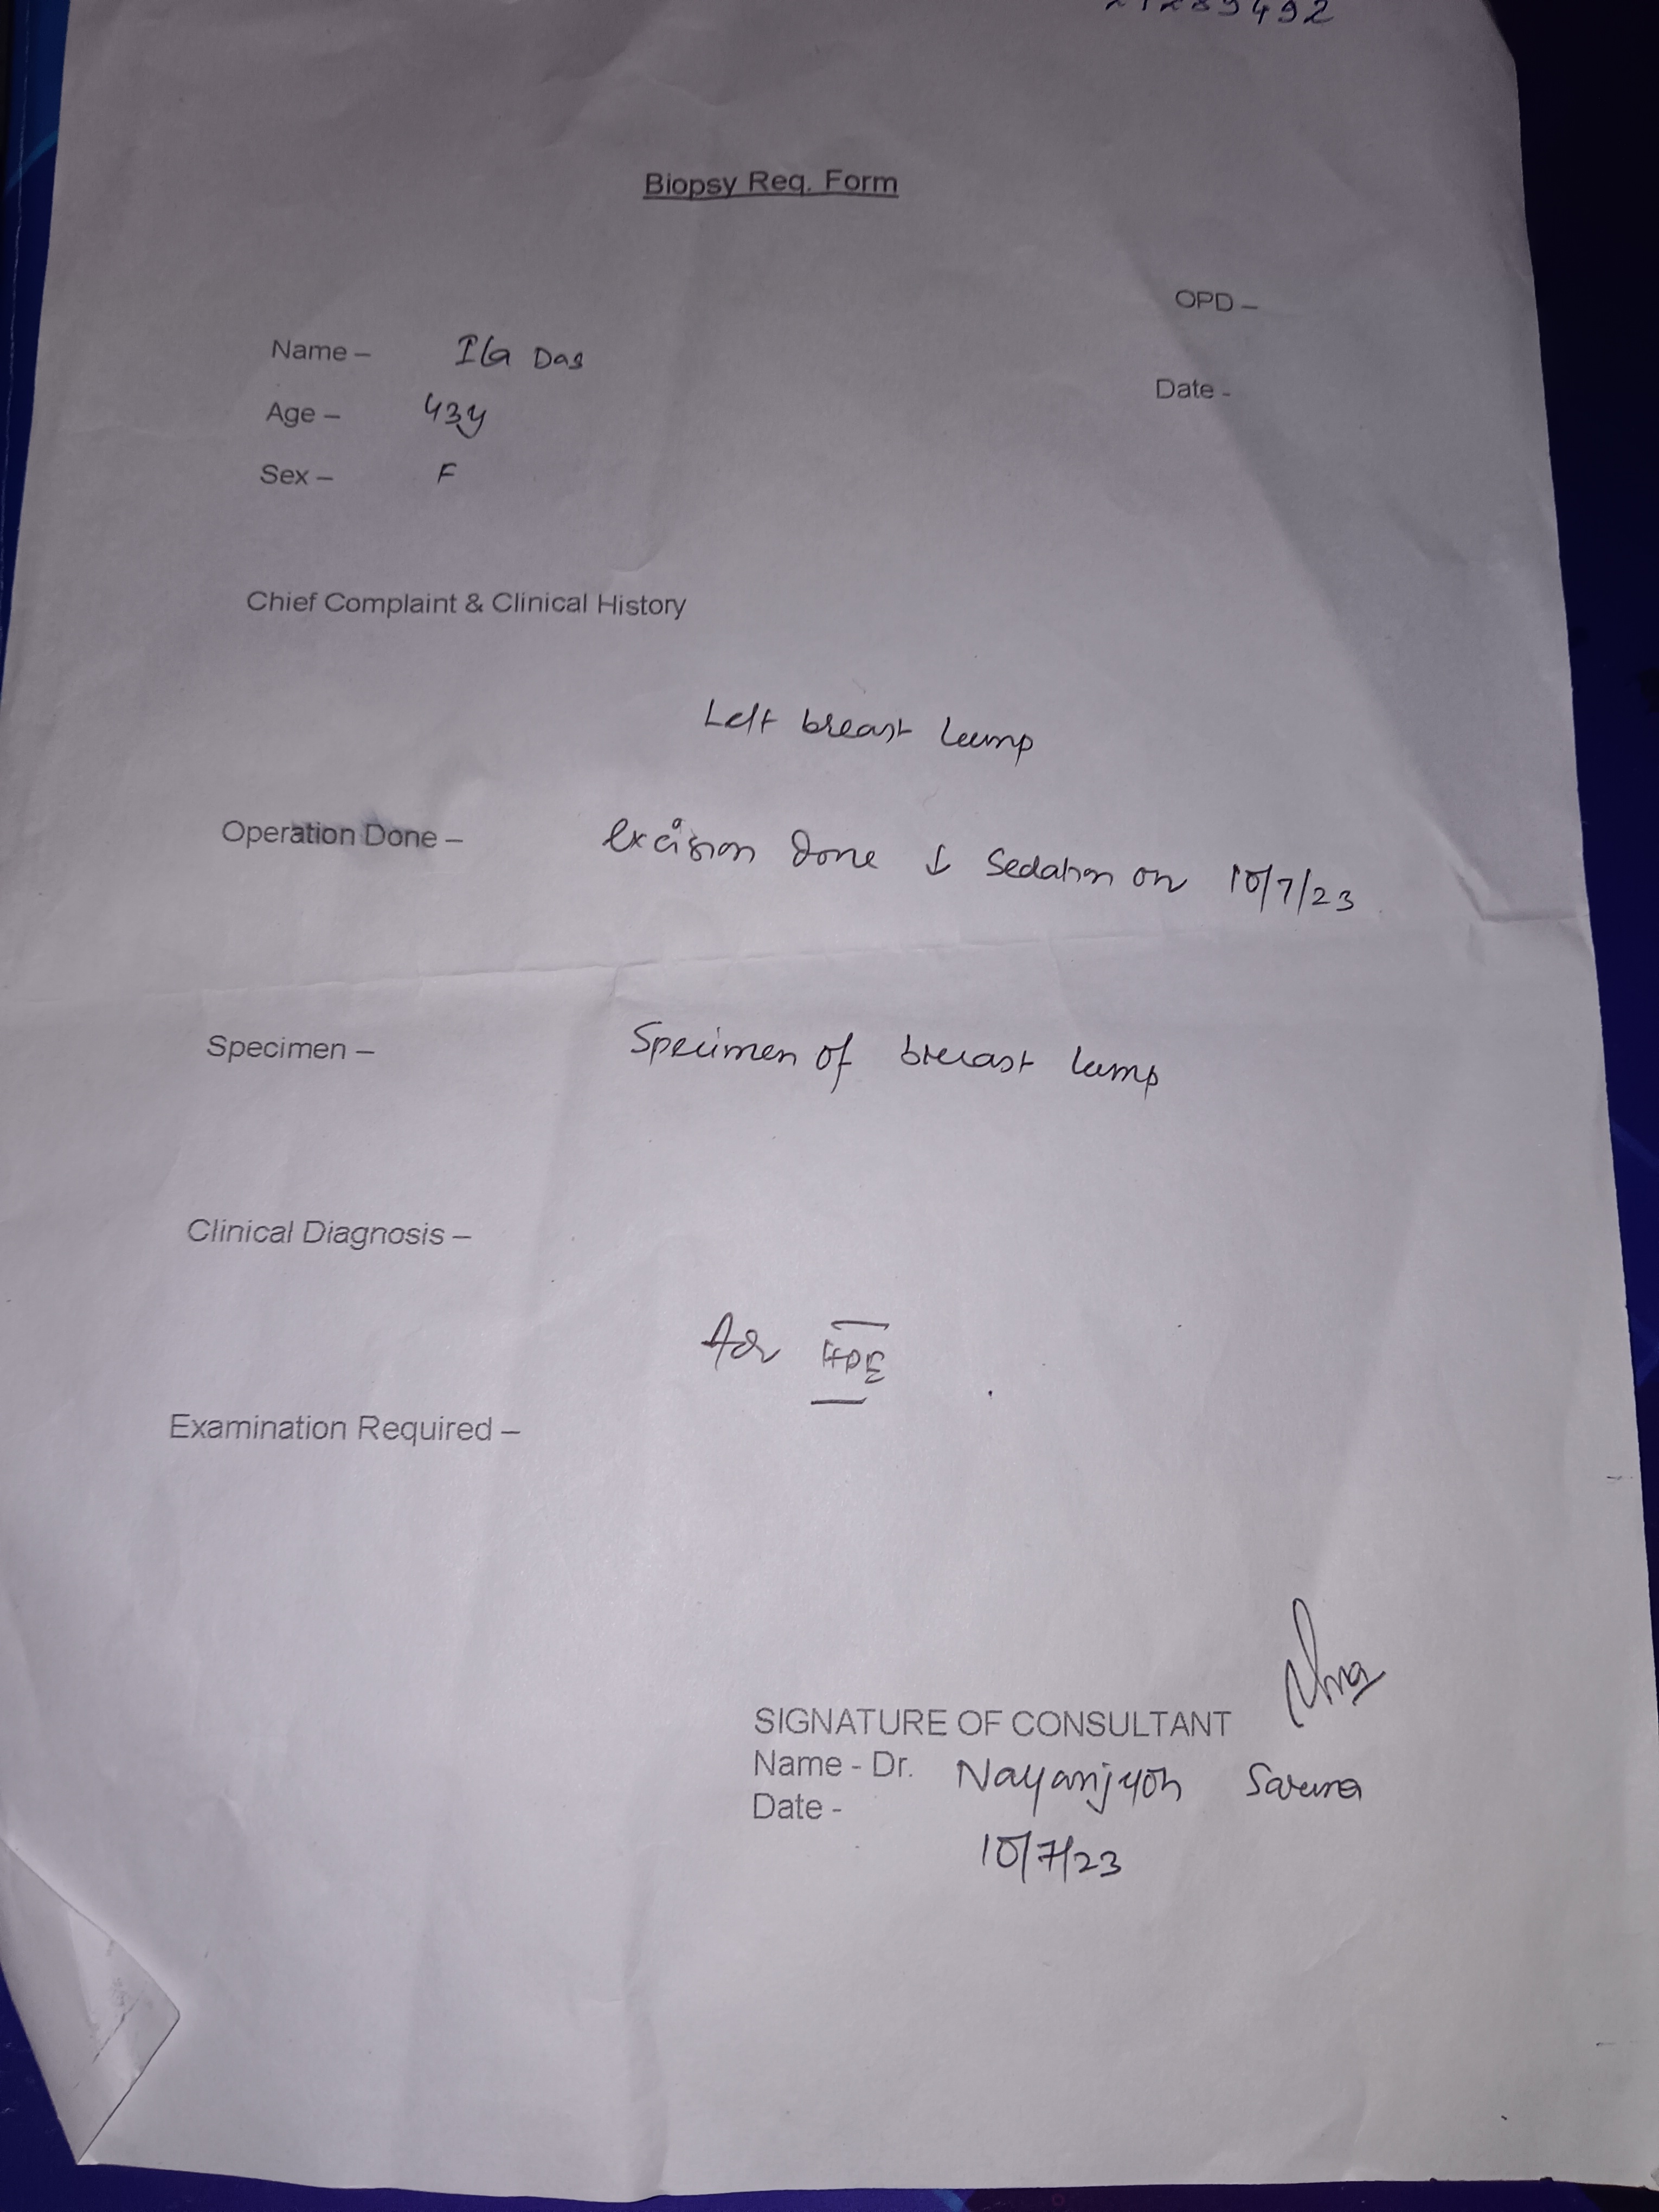 Biopsy Req. Form
OPD –
Name – Ila Das
Date -
Age – 43y
Sex – F
Chief Complaint & Clinical History
Left breast lump
Operation Done – excision done ↓ sedation on 10/7/23
Specimen – Specimen of breast lump
Clinical Diagnosis –
for HPE
Examination Required –
SIGNATURE OF CONSULTANT
Name - Dr. Nayanjyoti Sarma
Date -
10/7/23